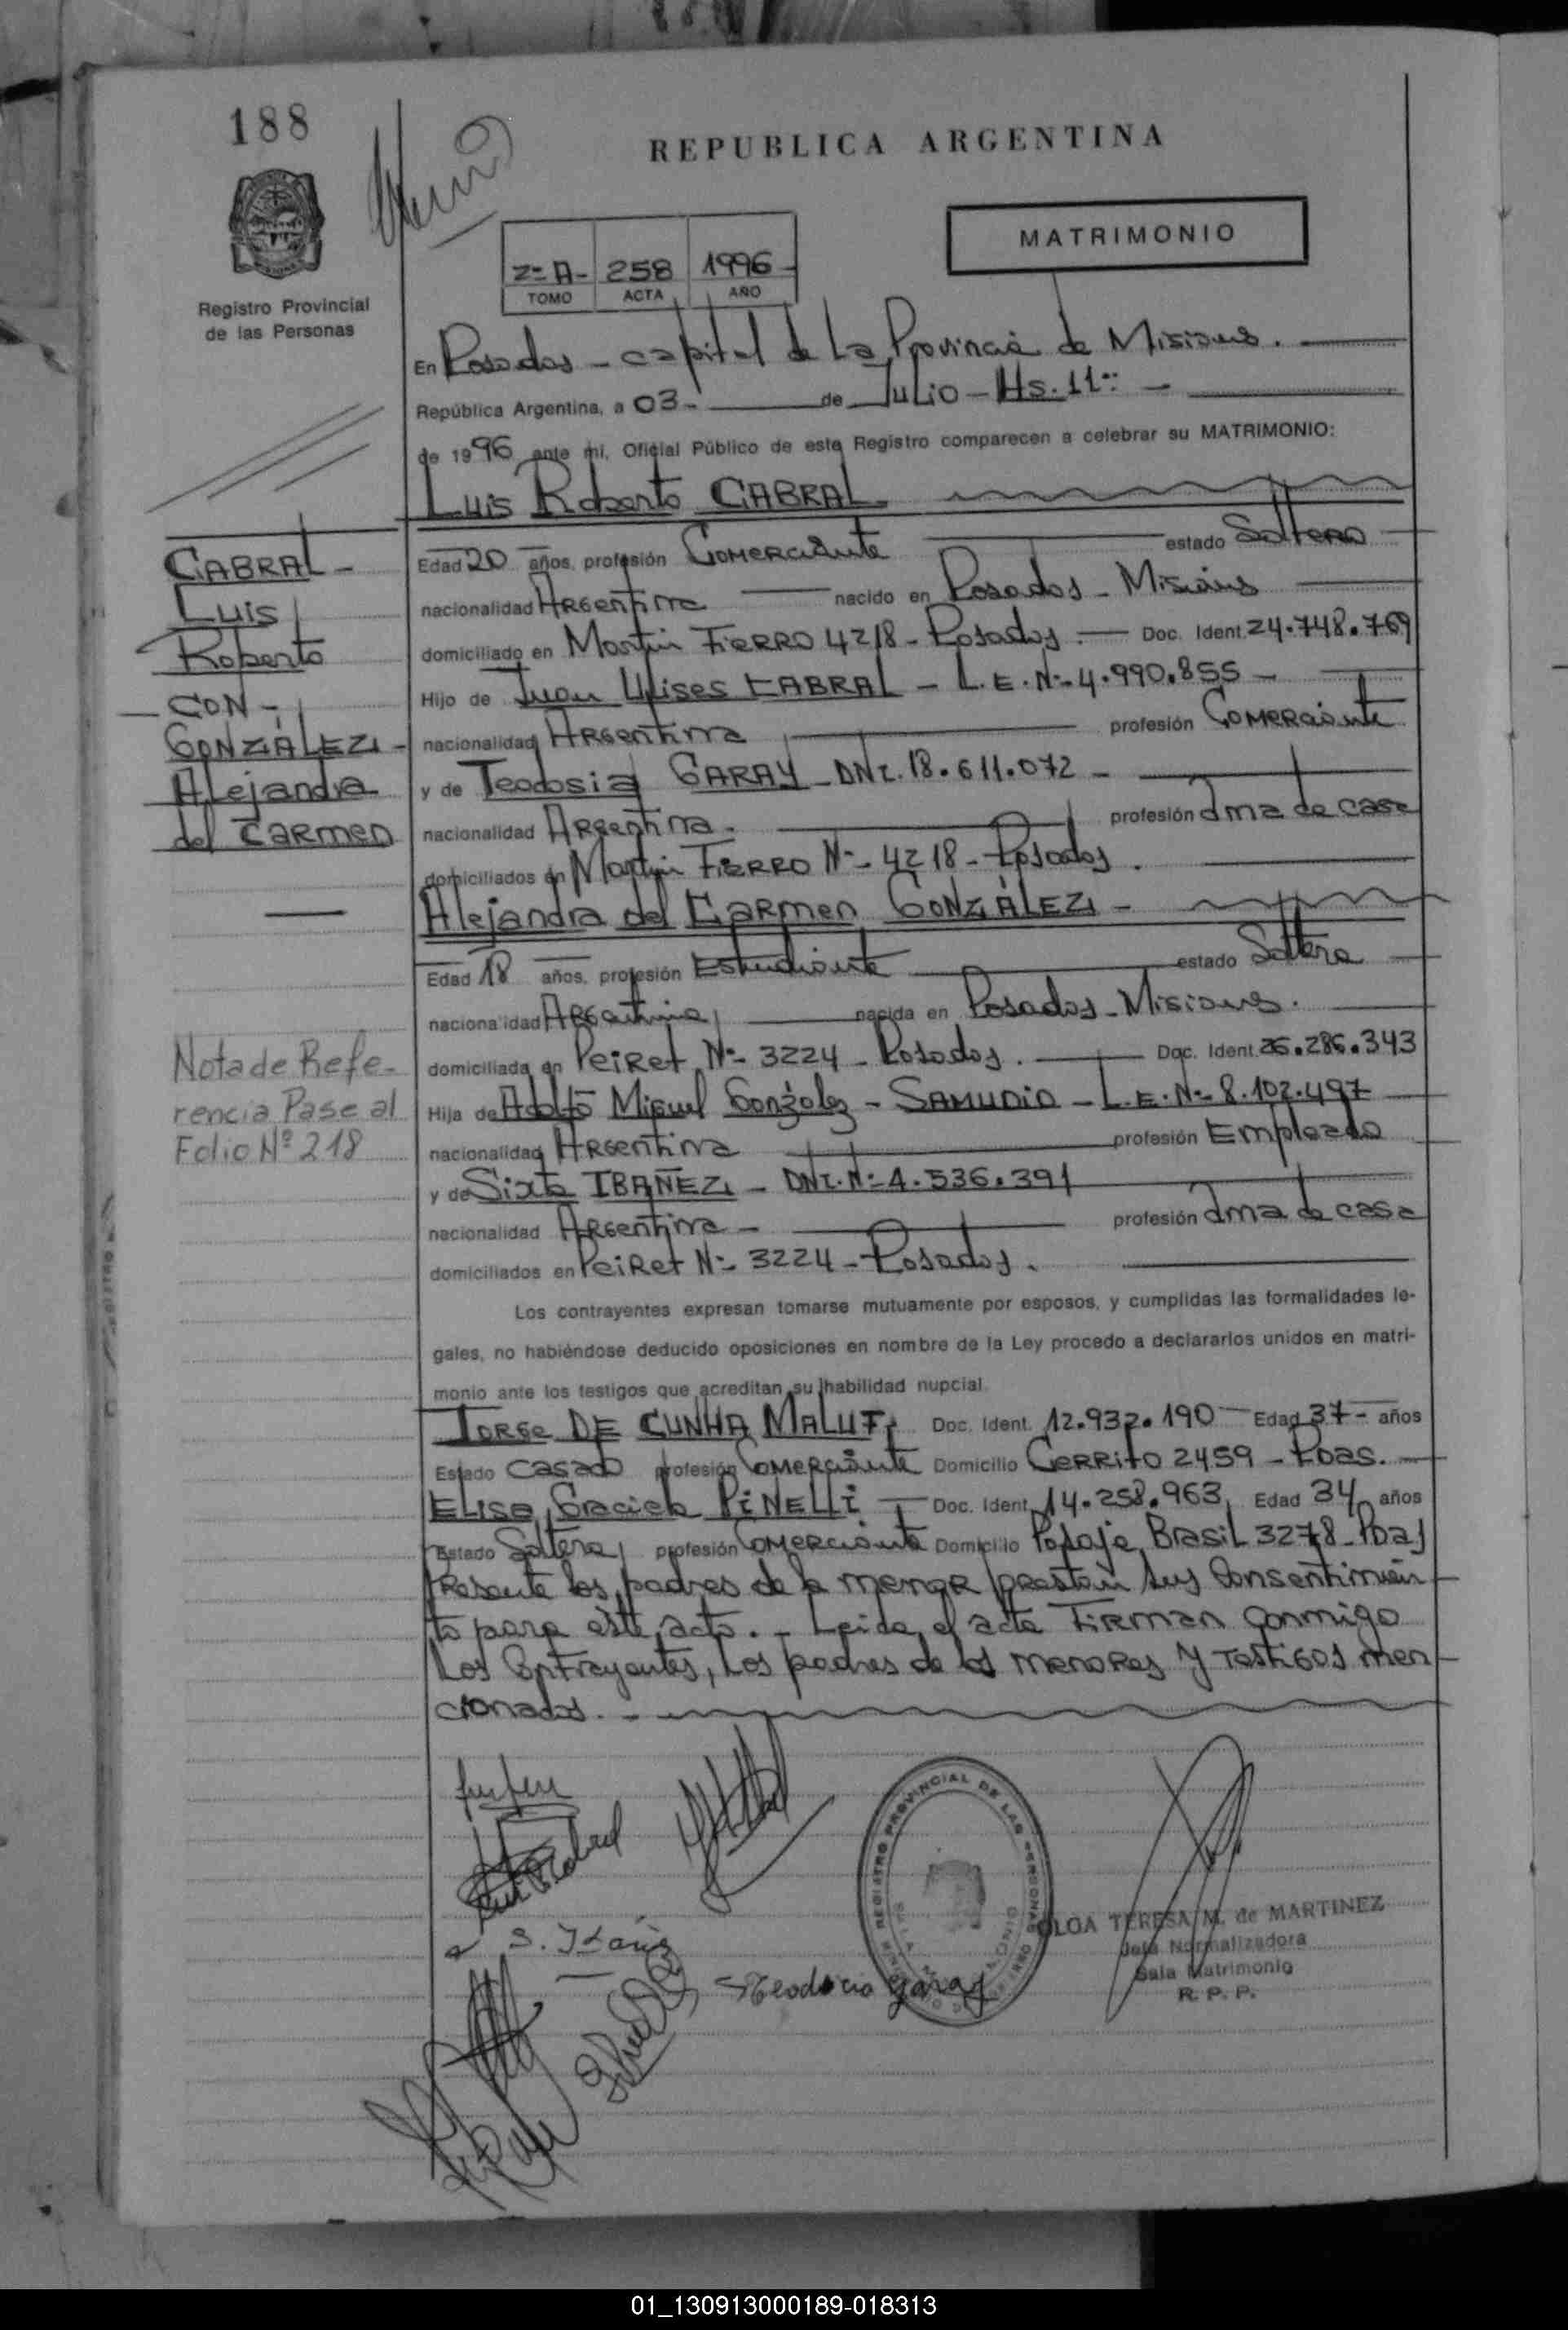 188
REPUBLICA ARGENTINA
MATRIMONIO
2º A- 258 1996-
TOMO ACTA AÑO
Registro Provincial
de las Personas
En Posadas - capital de La Provincia de Misiones.
República Argentina, a 03- de Julio - Hs. 11:
de 1996 ante mi, Oficial Público de este Registro comparecen a celebrar su MATRIMONIO:
Luis Roberto CABRAL
CABRAL-
Luis
Roberto
CON-
GONZÁLEZ-
Alejandra
del Carmen
Edad 20 años, profesión Comerciante estado Soltero
nacionalidad Argentina nacido en Posadas - Misiones
domiciliado en Martin Fierro 4218 - Posadas. Doc. Ident. 24.748.769
Hijo de Juan Ulises CABRAL - L.E.Nº 4.990.855 -
nacionalidad Argentina profesión Comerciante
y de Teodosia GARAY - DNI. 18.611.072 -
nacionalidad Argentina. profesión ama de casa
domiciliados en Martin Fierro Nº 4218 - Posadas.
Alejandra del Carmen GONZÁLEZ -
Edad 18 años, profesión Estudiante estado Soltera
nacionalidad Argentina nacida en Posadas - Misiones.
domiciliada en Peiret Nº 3224 - Posadas. Doc. Ident. 26.286.343
Hija de Adolfo Miguel González - SAMUDIO - L.E.Nº 8.102.497
nacionalidad Argentina profesión Empleado
y de Sixta IBAÑEZ - DNI.Nº 4.536.391
nacionalidad Argentina - profesión ama de casa
domiciliados en Peiret Nº 3224 - Posadas.
Nota de Refe-
rencia Pase al
Folio Nº 218
Los contrayentes expresan tomarse mutuamente por esposos, y cumplidas las formalidades le-
gales, no habiéndose deducido oposiciones en nombre de la Ley procedo a declararlos unidos en matri-
monio ante los testigos que acreditan su habilidad nupcial.
Jorge DE CUNHA MALUF, Doc. Ident. 12.932.190 Edad 37- años
Estado casado profesión Comerciante Domicilio Cerrito 2459 - Pdas.
ELISA Graciela PINELLI - Doc. Ident. 14.258.963 Edad 34 años
Estado Soltera profesión Comerciante Domicilio Pasaje Brasil 3278 - Pdas
Presente los padres de la menor prestan sus Consentimien
to para este acto. - Leida el acta Firman conmigo
Los Contrayentes, Los padres de los menores y Testigos men
cionados. -
S. Ibañez
Teodocia Garay
REGISTRO PROVINCIAL DE LAS PERSONAS
OLGA TERESA M. de MARTINEZ
Jefa Normalizadora
Sala Matrimonio
R. P. P.
01_130913000189-018313